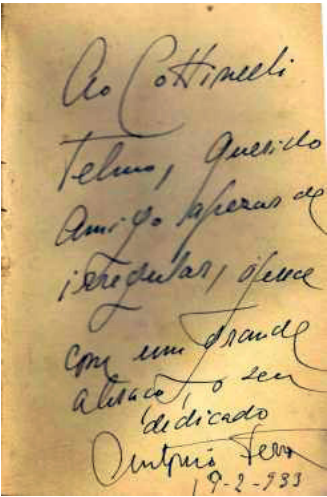 Ao Cottinelli
Telmo, querido
Amigo apezar de
irregular, oferece
com um grande
abraço, o seu
dedicado
António Ferro
19-2-933